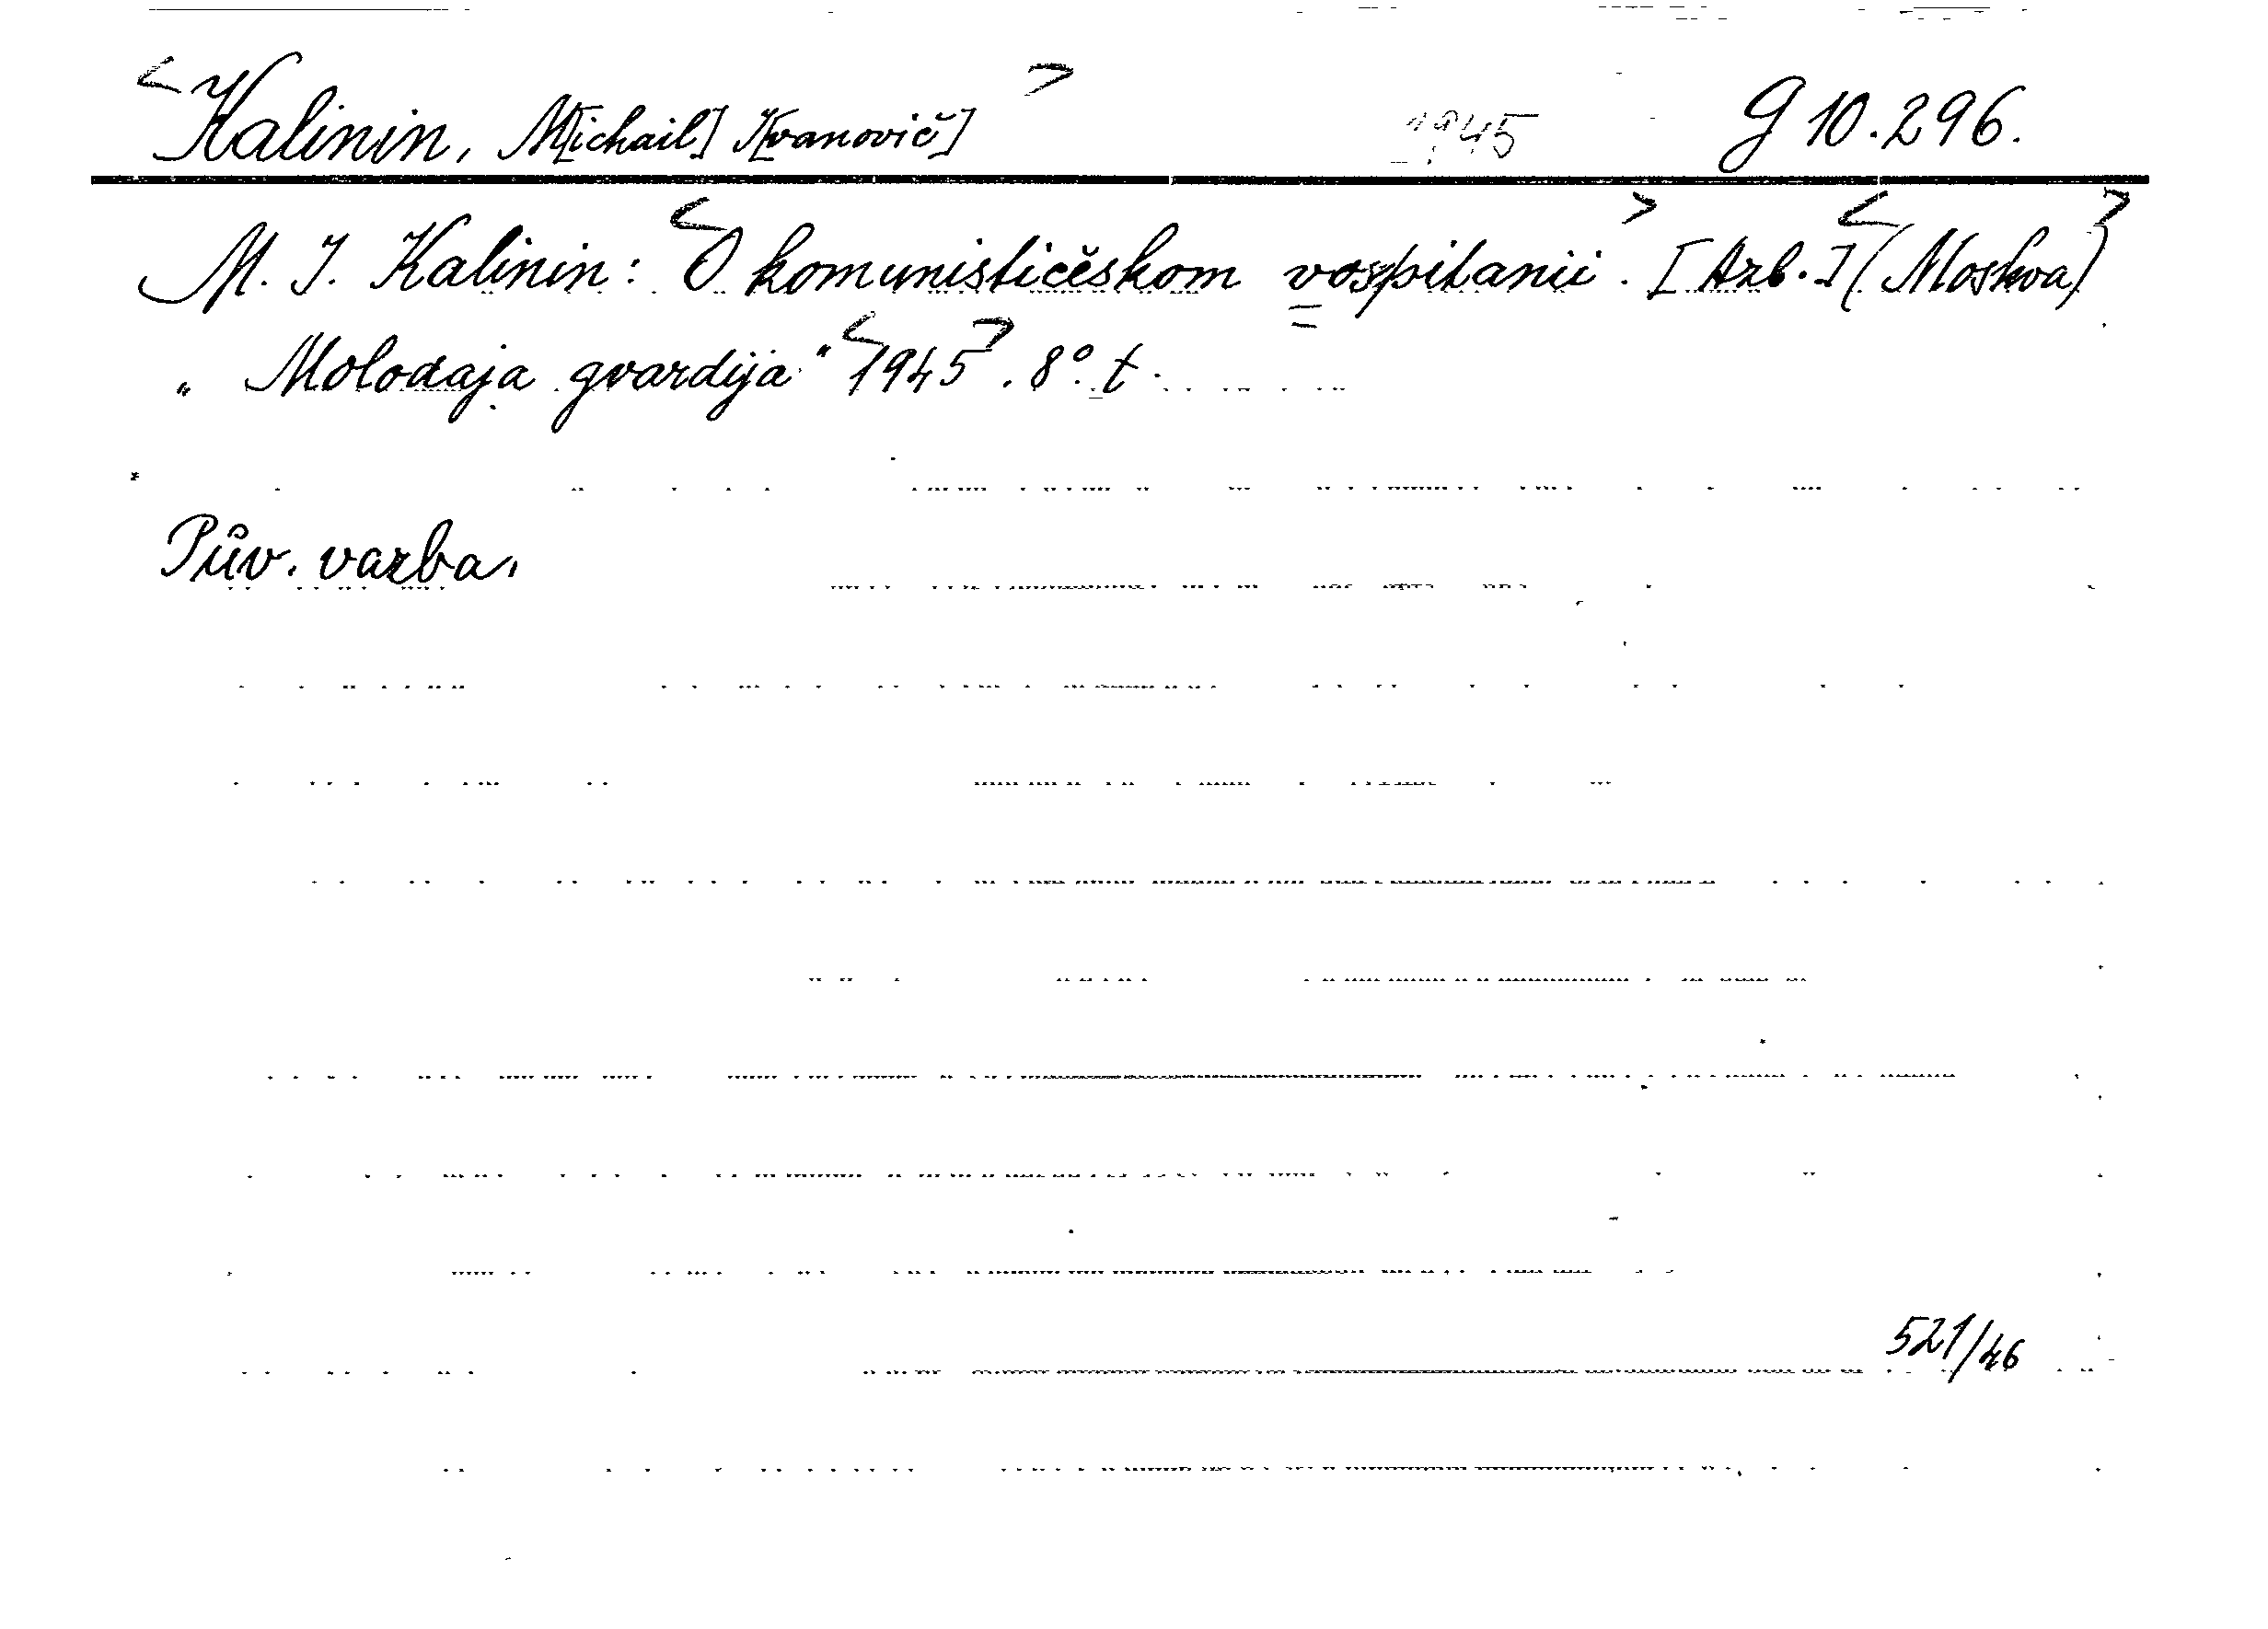 <Kalinin, M[ichail] I[vanovič]> 1945 G 10.296.
M. I. Kalinin: <O komunističěskom vospitanii>. [Azb.] <(Moskva)>
„Molodaja gvardija" <1945>. 8°. t.
Pův. vazba.
521/46